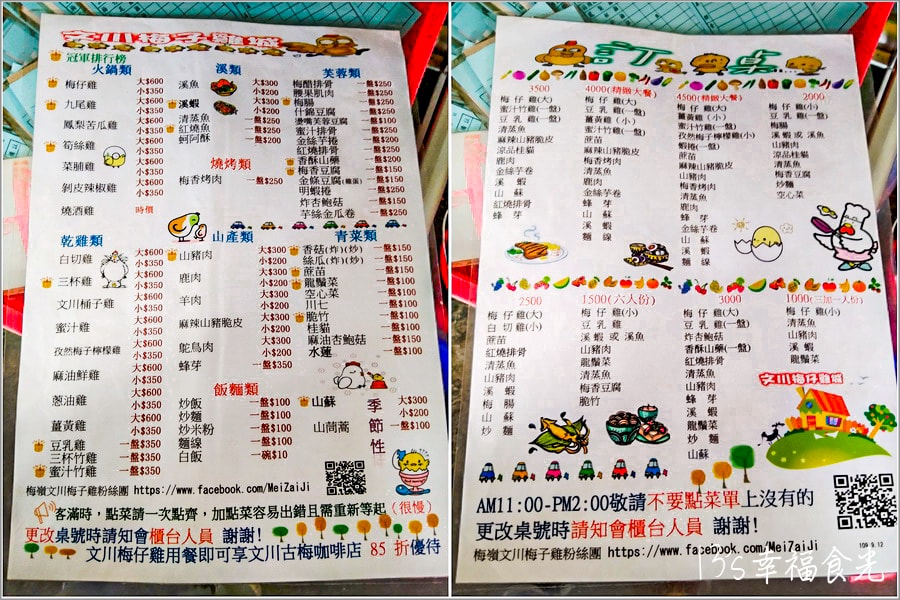 文川梅子雞城
冠軍排行榜
火鍋類
梅仔雞 大$600 小$350
九尾雞 大$600 小$350
鳳梨苦瓜雞 大$600 小$350
筍絲雞 大$600 小$350
菜脯雞 大$600 小$350
剝皮辣椒雞 大$600 小$350
燒酒雞 時價
溪類
溪魚 大$300 小$200
溪蝦 大$300 小$200
清蒸魚
紅燒魚
蚵阿酥 一盤$200
燒烤類
梅香烤肉 一盤$250
芙蓉類
梅醋排骨 一盤$250
腰果肌肉 一盤$250
梅腸 一盤$200
什錦豆腐
燙嘴芙蓉豆腐
蜜汁排骨
金絲芋捲
紅燒排骨
香酥山藥
梅香豆腐
金條豆腐(雞蛋)
明蝦捲
炸杏鮑菇
芋絲金瓜卷 一盤$250
乾雞類
白切雞 大$600 小$350
三杯雞 大$600 小$350
文川桶子雞 大$600 小$350
蜜汁雞 大$600 小$350
孜然梅子檸檬雞 大$600 小$350
麻油鮮雞 大$600 小$350
蔥油雞 大$600 小$350
薑黃雞 大$600 小$350
豆乳雞 一盤$350
三杯竹雞 一盤$350
蜜汁竹雞 一盤$350
山產類
山豬肉 大$300 小$200
鹿肉 大$300 小$200
羊肉 大$300 小$200
麻辣山豬脆皮 大$300 小$200
鴕鳥肉 大$300 小$200
蜂芽 一盤$350
飯麵類
炒飯 一盤$100
炒麵 一盤$100
炒米粉 一盤$100
麵線 一盤$100
白飯 一碗$10
青菜類
香菇(炸)(炒) 一盤$150
絲瓜(炸)(炒) 一盤$150
蔗苗 一盤$150
龍鬚菜 一盤$100
空心菜 一盤$100
川七 一盤$100
脆竹 一盤$100
桂貓 一盤$100
麻油杏鮑菇
水蓮 一盤$100
山蘇 大$300 小$200
山茼蒿 一盤$100
季節性
梅嶺文川梅子雞粉絲團 https://www.facebook.com/MeiZaiJi
客滿時，點菜請一次點齊，加點菜容易出錯且需重新等起(很慢)
更改桌號時請知會櫃台人員 謝謝!
文川梅仔雞用餐即可享文川古梅咖啡店 85 折優待
訂桌
3500
梅仔雞(大)
蜜汁竹雞(大)
豆乳雞(小)
清蒸魚
麻辣山豬脆皮
涼品桂貓
鹿肉
金絲芋卷
溪蝦
山蘇
紅燒排骨
蜂芽
4000(精緻大餐)
梅仔雞(大)
豆乳雞(大)
薑黃雞(小)
蜜汁竹雞(一盤)
麻辣山豬脆皮
梅香烤肉
清蒸魚
鹿肉
金絲芋卷
蜂芽
山蘇
溪蝦
麵線
4500(精緻大餐)
梅仔雞(大)
薑黃雞(小)
蜜汁竹雞(大)
孜然梅子檸檬(小)
蝦捲(一盤)
蔗苗
麻辣山豬脆皮
山豬肉
梅香烤肉
清蒸魚
鹿肉
蜂芽
金絲芋卷
山蘇
溪蝦
麵線
2000
梅仔雞(小)
豆乳雞(一盤)
梅腸
溪蝦 或 溪魚
山豬肉
涼品桂貓
清蒸魚
梅香豆腐
炒麵
空心菜
2500
梅仔雞(大)
白切雞(小)
蔗苗
紅燒排骨
清蒸魚
山豬肉
溪蝦
梅腸
山蘇
炒麵
1500(六人份)
梅仔雞(小)
豆乳雞
溪蝦 或 溪魚
山豬肉
龍鬚菜
清蒸魚
梅香豆腐
脆竹
3000
梅仔雞(大)
豆乳雞(一盤)
炸杏鮑菇
香酥山藥(一盤)
紅燒排骨
清蒸魚
山豬肉
蜂芽
溪蝦
龍鬚菜
炒麵
山蘇
1000(三加一人份)
梅仔雞(小)
清蒸魚
山豬肉
溪蝦
龍鬚菜
文川梅仔雞城
AM11:00-PM2:00敬請不要點菜單上沒有的
更改桌號時請知會櫃台人員 謝謝!
梅嶺文川梅子雞粉絲團 https://www.facebook.com/MeiZaiJi
109.9.12
135幸福食光